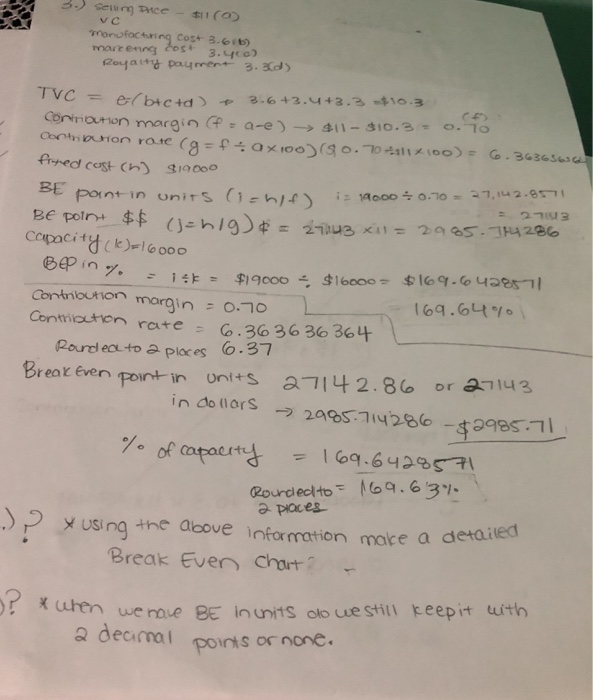 3.) Selling Price - $11 (a)
VC
manufacturing cost 3.6(b)
marketing cost 3.4(c)
Royalty payment 3.3(d)
TVC = e(b+c+d) → 3.6+3.4+3.3 = $10.3
Contribution margin (f = a-e) → $11 - $10.3 = 0.70 (f)
Contribution rate (g = f ÷ a×100) ($0.70 ÷ $11 × 100) = 6.363636364
fixed cost (h) $19000
BE point in units (i = h/f) i = 19000 ÷ 0.70 = 27,142.8571
= 27143
BE point $$ (j = h/g) $ = 27143 × 11 = 2985.714286
Capacity (k) = 16000
BEP in % = i÷k = $19000 ÷ $16000 = $169.6428571
Contribution margin = 0.70 169.64%
Contribution rate = 6.363636364
Rounded to 2 places 6.37
Break Even point in units 27142.86 or 27143
in dollars → 2985.714286 - $2985.71
% of capacity = 169.6428571
Rounded to = 169.63%
2 places
.)? * using the above information make a detailed
Break Even Chart?
)? * when we have BE in units do we still keep it with
2 decimal points or none.